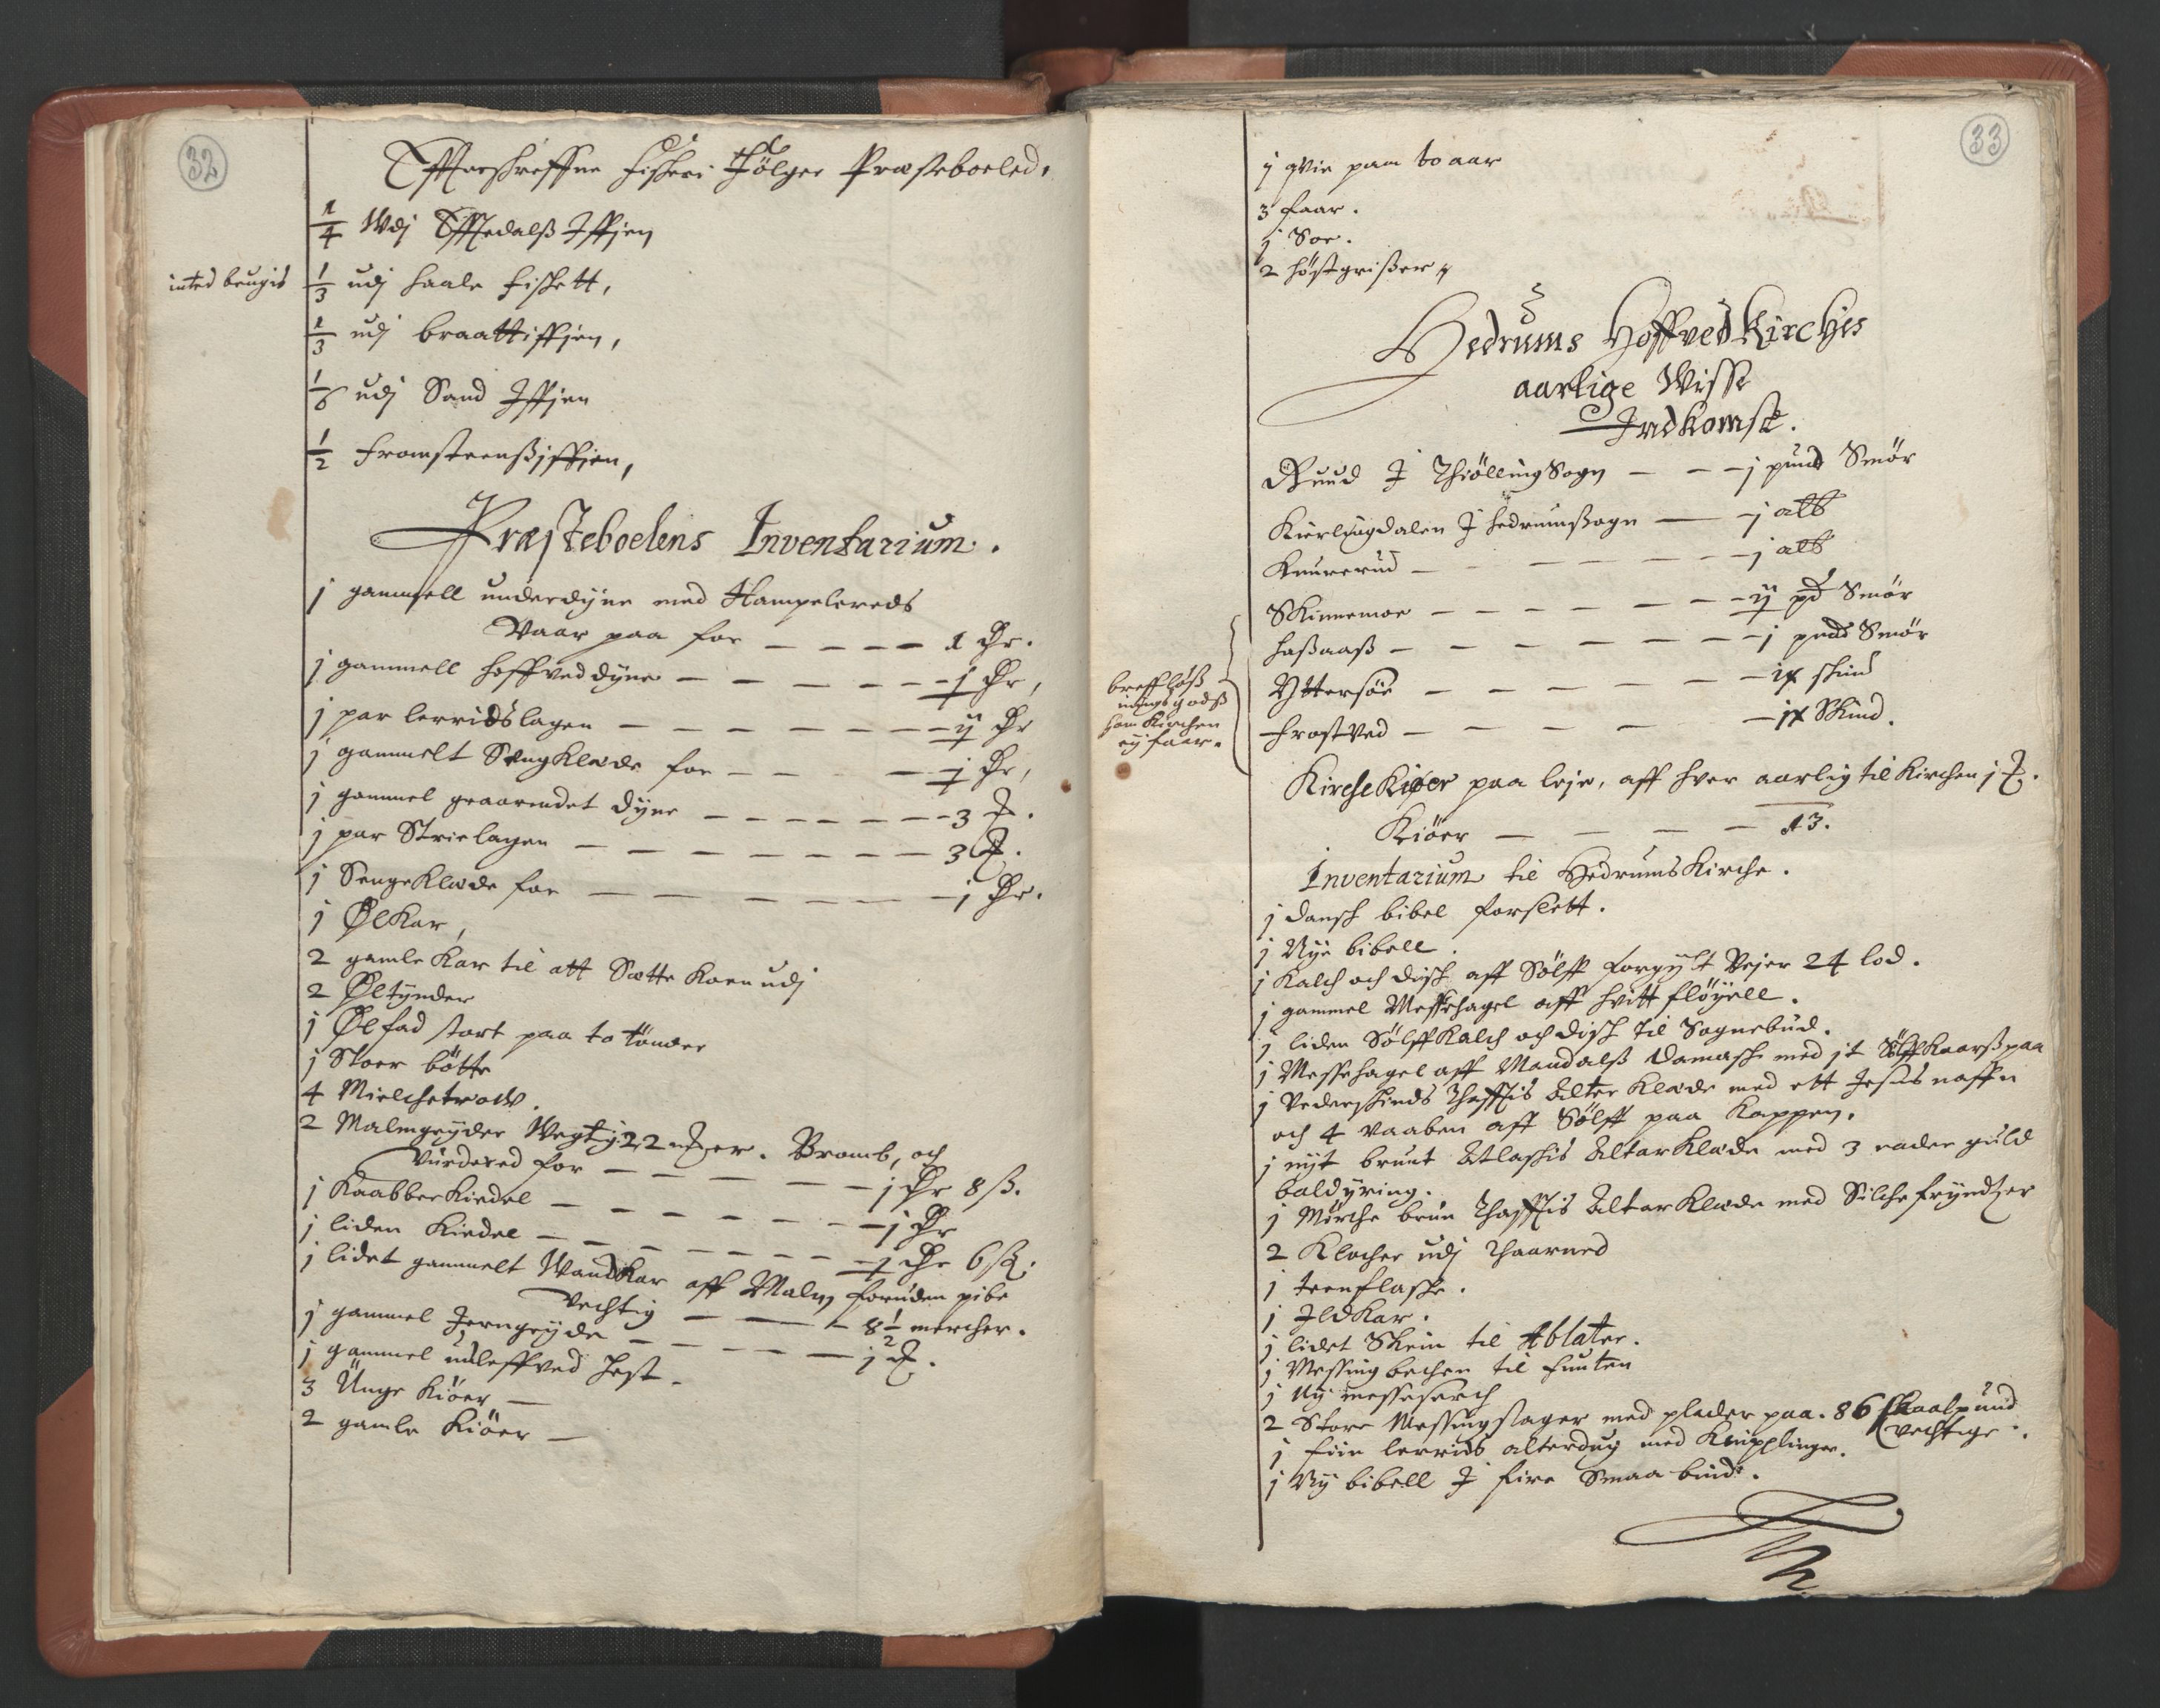 32
Effterskreffne fiskeri Følger Præsteboeled.
1/4 Udj Efftedalß Iffjen
inted brugis
1/3 udj Haale fiskett,
1/3 udj braattiffjen,
1/6 udj Sand Iffjen
1/2 Fromsteenßiffjen,
Præsteboelens Inventarium.
j gammell underdyne med Hampelereds
Vaar paa for — — — — 1 dr.
j gammell hoffveddyne — — — — — j dr,
j par lerridslagen — — — — — — ij dr
j gammelt Sengklæde for — — — j dr,
j gammel graarendet dyne — — — — — — 3 ₰.
j par Strielagen — — — — — — — 3 ₰.
j Sengeklæde for — — — — — — j dr.
j Ølkar,
2 gamle kar til att Sætte korn udj
2 Øltynder
j Ølfad stort paa to tönder
j Stoer bötte
4 Mielchetrow.
2 Malmgryder Wegtig 22 mker. Bramb, och
Vurdered for — — — — — j dr 8 ß.
j Kaabberkiedel — — — — — — — j dr
j liden kiedel — — — — — — — j dr 6 ß.
j lidet gammelt Wandkar aff Malm foruden pibe
Vechtig — — — 8 1/2 mercher.
j gammel Jerngryde — — — — — j ₰.
j gammel udleffved hest.
3 Unge kiöer —
2 gamle kiöer —
33
j qvie paa to aar
3 faar.
j Soe.
2 höstgrißer
Hedrums Hoffved Kirches
aarlige Wisse
Indkomst.
Ruud J Thiölling Sogn — — — j pund Smör
Kierlingdalen J Hedrumßogn — — j alb
Knurerud — — — — — — j alb
Skinnemoe — — — — — — — ij pd Smör
Haßaaß — — — — — — — j pund Smör
breffløß
Yttersöe — — — — — — ix skind
inngodß
som kirchen
ej faar.
Frostved — — — — — ix Skind.
Kirchekiöer paa leje, aff hver aarlig til kirchen j ₰.
Kiöer — — — — 13.
Inventarium til Hedrums Kirche.
j dansk bibel forslett.
j Nye bibell.
j Kalch och disk aff Sölff forgylt Vejer 24 lod.
j gammel Messehagel aff hvitt flöyell.
j liden Sölffkalch och disk til Sognebud.
j Messehagel aff Mandalß damask med jt Sölffkaarß paa
j Rederskinds Thafftis Alter klæde med ett Jesus naffn
och 4 vaaben aff Sölff paa kappen.
j nyt brunt Atlaskis Altarklæde med 3 rader guld
baldyring.
j Mörcke brun Thafftis Altarklæde med Silche fryndzer
2 Klocher udj Thaarned
j teenflaske.
j Ildkar.
j lidet Skrin til Ablater.
j Messing bechen til Funten
j Ny messeserch
2 Store Messingstager med plader paa. 86 skaalpund
vechtige.
j fiin lerrids alterdug med kniplinger.
j Ny bibell J fire Smaa bind.